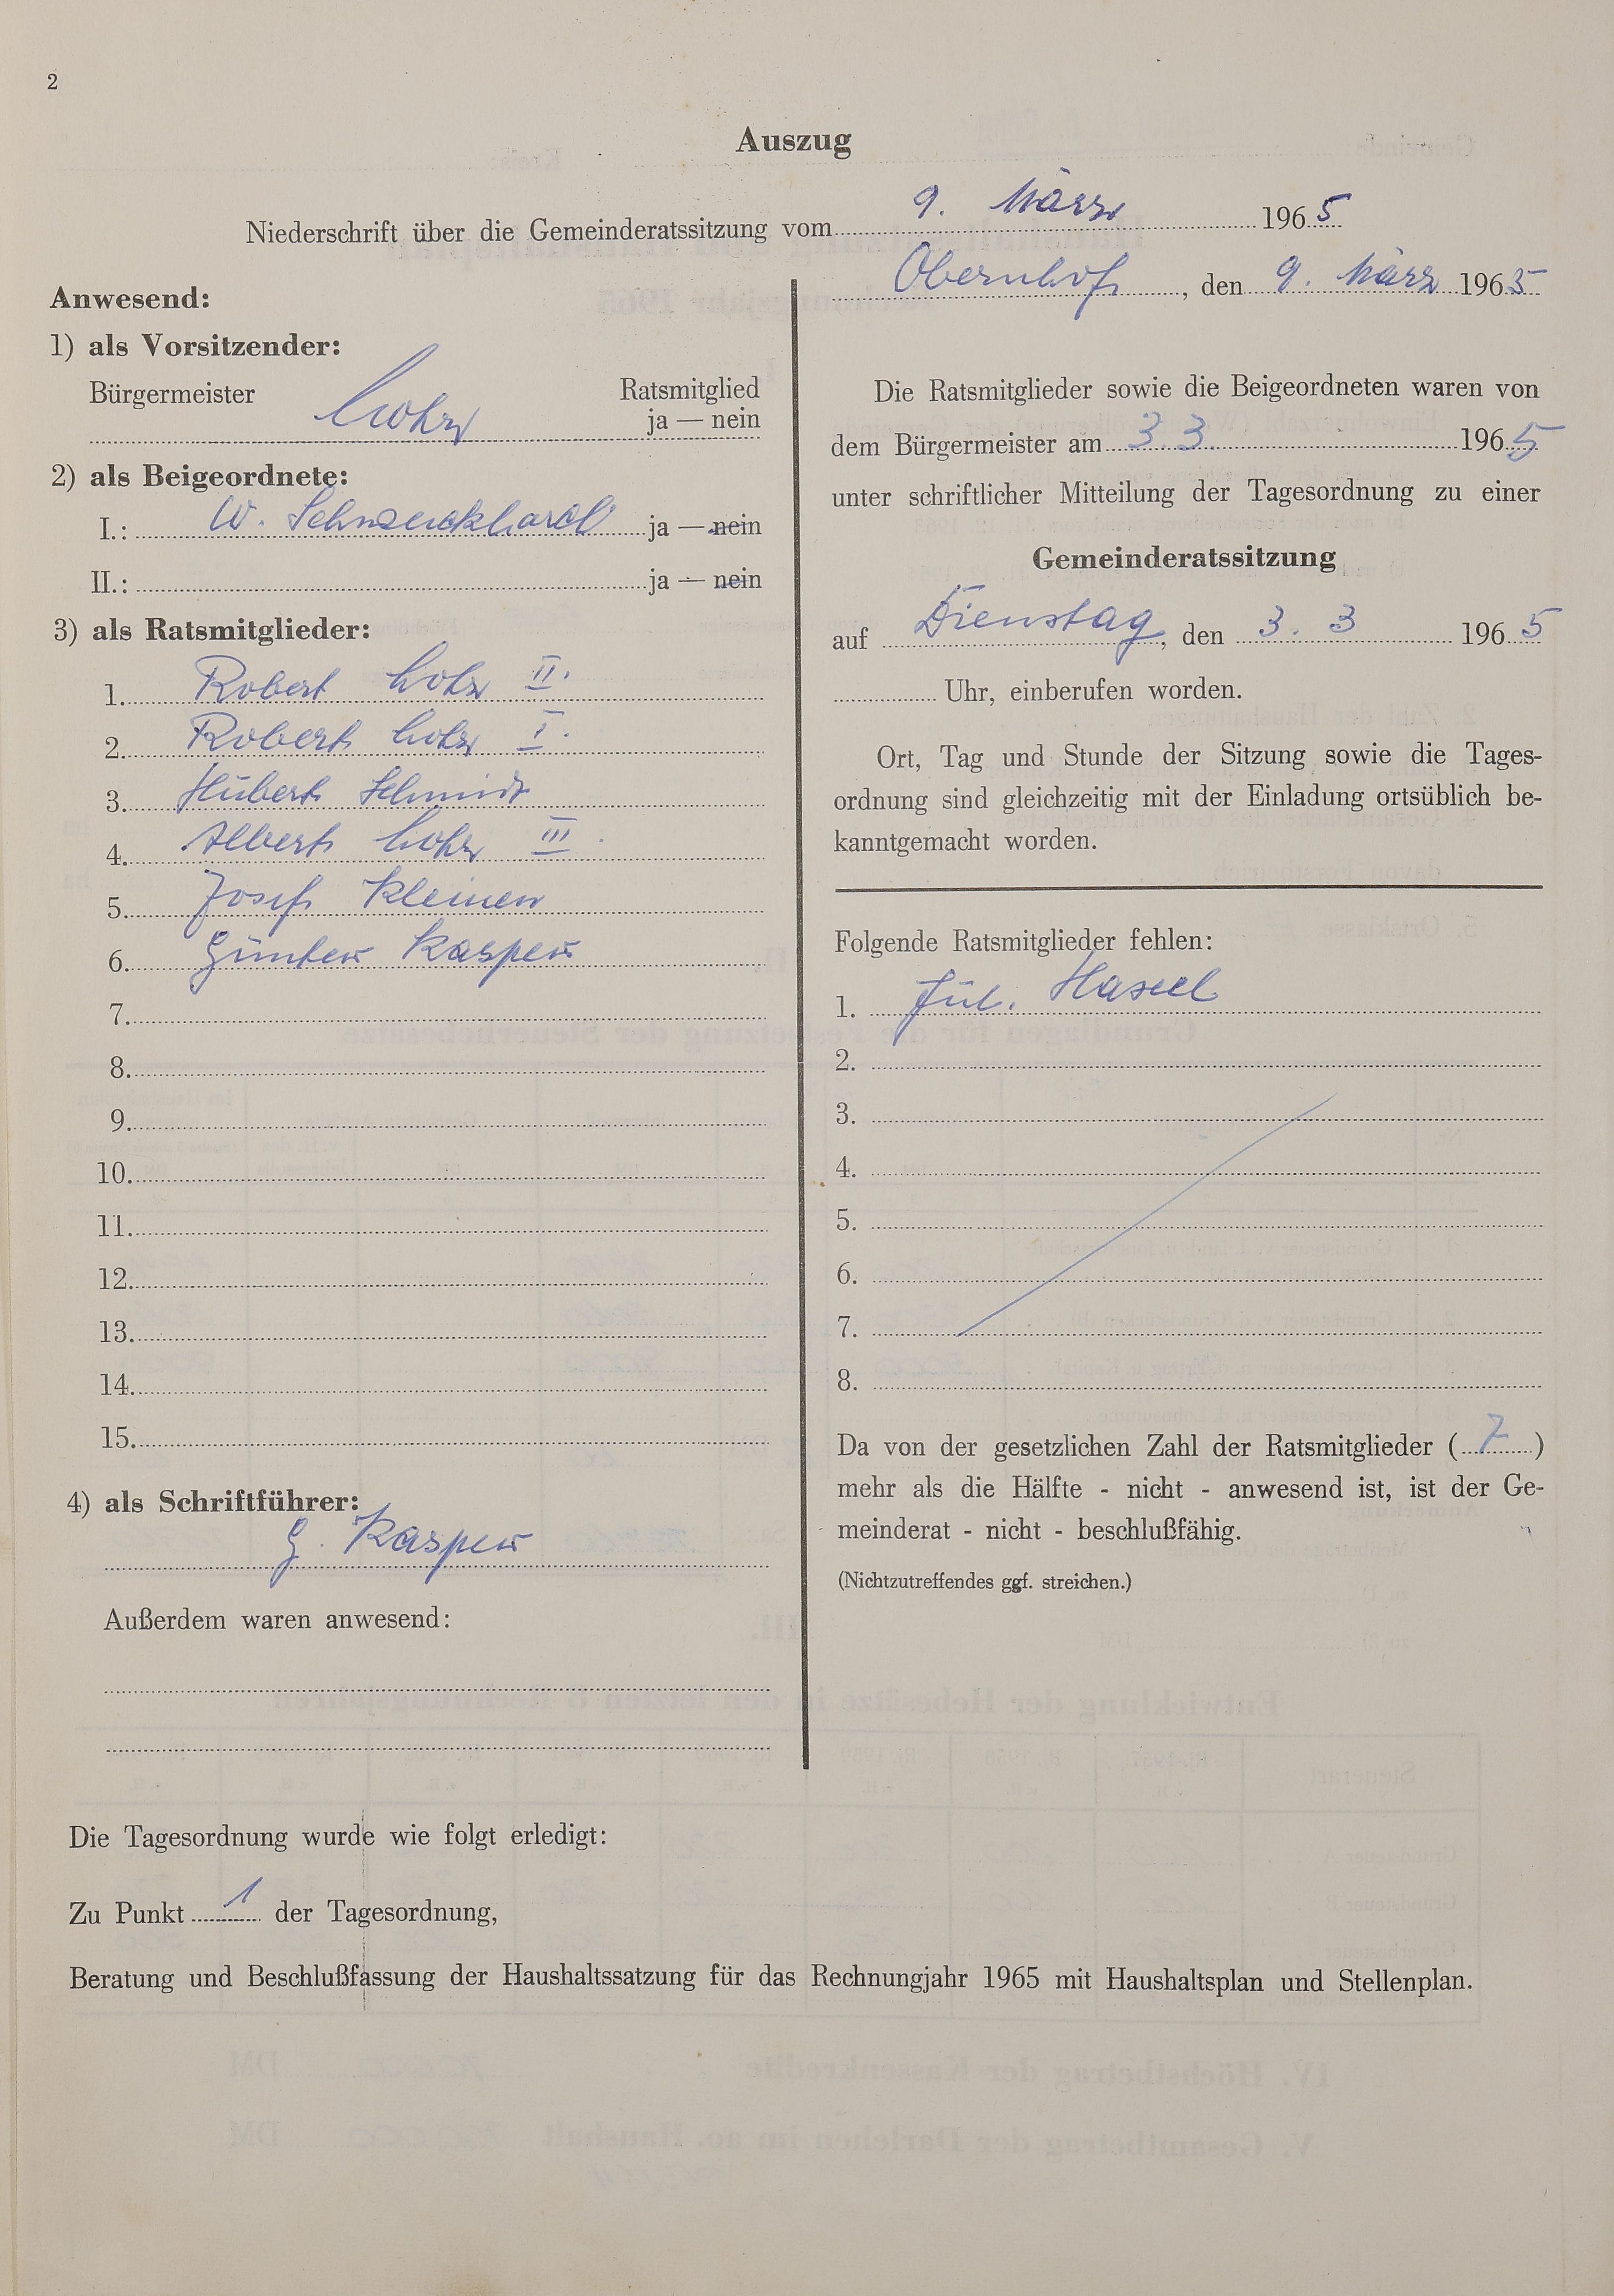 2
Auszug
Niederschrift über die Gemeinderatssitzung vom 9. März 1965
Anwesend:
1) als Vorsitzender:
Bürgermeister Ratsmitglied
ja — nein
2) als Beigeordnete:
I.: W. ja — nein
II.: ja — nein
3) als Ratsmitglieder:
1. Robert Lotz II.
2. Robert Lotz I.
3. Hübert Schmidt
4. Albert Lotz III.
5. Josef Kleinen
6. Günter Kasper
7.
8.
9.
10.
11.
12.
13.
14.
15.
4) als Schriftführer:
G. Kasper
Außerdem waren anwesend:
Obernhof, den 9. März 1965
Die Ratsmitglieder sowie die Beigeordneten waren von
dem Bürgermeister am 3. 3. 1965
unter schriftlicher Mitteilung der Tagesordnung zu einer
Gemeinderatssitzung
auf Dienstag, den 3. 3 1965
Uhr, einberufen worden.
Ort, Tag und Stunde der Sitzung sowie die Tages-
ordnung sind gleichzeitig mit der Einladung ortsüblich be-
kanntgemacht worden.
Folgende Ratsmitglieder fehlen:
1. Jül.
2.
3.
4.
5.
6.
7.
8.
Da von der gesetzlichen Zahl der Ratsmitglieder (7)
mehr als die Hälfte - nicht - anwesend ist, ist der Ge-
meinderat - nicht - beschlußfähig.
(Nichtzutreffendes ggf. streichen.)
Die Tagesordnung wurde wie folgt erledigt:
Zu Punkt 1 der Tagesordnung,
Beratung und Beschlußfassung der Haushaltssatzung für das Rechnungjahr 1965 mit Haushaltsplan und Stellenplan.